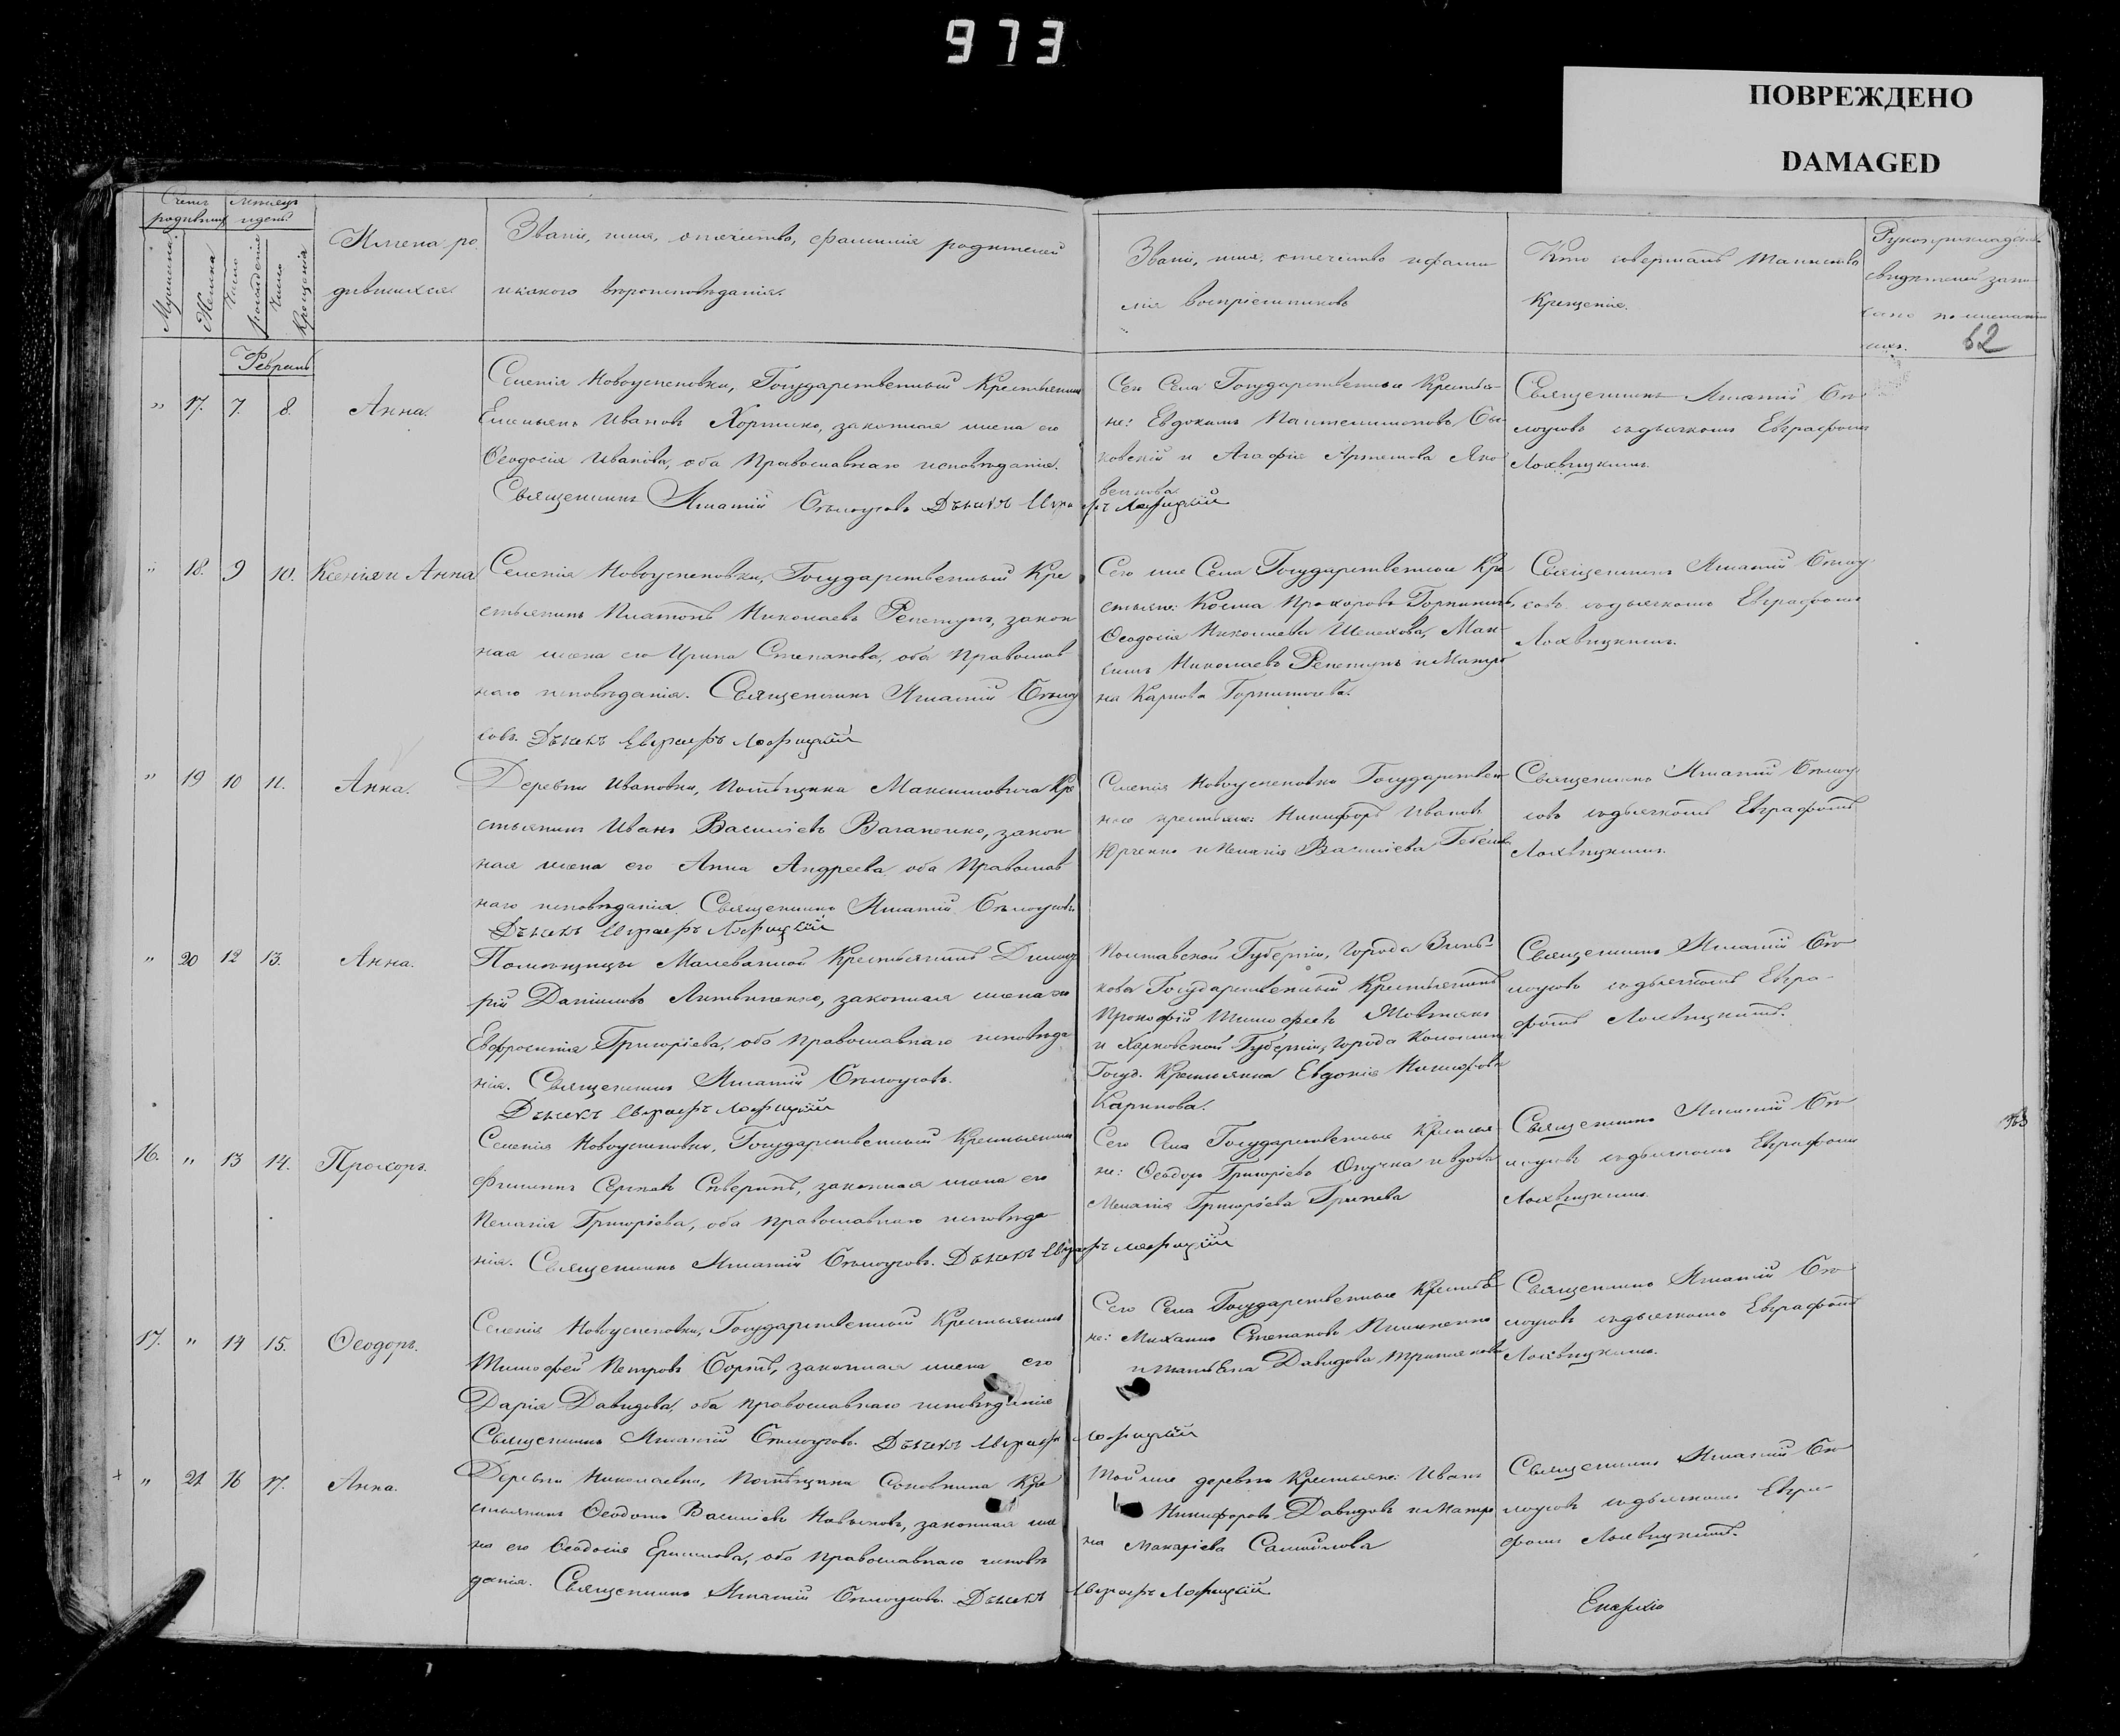 973
ПОВРЕЖДЕНО
DAMAGED
Счетъ родившихся
Мѣсяцъ и день
Мужеска
Женска
Число рожденія
Число крещенія
Имена ро
дившихся.
Званіе, имя, отечество, фамилія родителей
и какого вѣроисповѣданія.
Званіе, имя, отечество и фами
лія воспріемниковъ
Кто совершалъ таинство
Крещенія.
Рукоприкладство
свидетелей запи
62
Февраль
" 17. 7. 8. Анна.
Селенія Новоуспеновки, Государственный Крестьянинъ
Емельянъ Ивановъ Хоришко, законная жена его
Ѳеодосія Иванова, оба Православнаго исповѣданія.
Священникъ Игнатій Бѣлоусовъ Дьячекъ Евграфъ Лохвицкій
Сего Села Государственные Крестья-
не: Евдокимъ Пантелимоновъ
и Агафія Артемова Яко
венкова
Священникъ Игнатій Бѣ
лоусовъ съ дьячкомъ Евграфомъ
Лохвицкимъ.
" 18. 9 10. Ксенія и Анна
Селенія Новоуспеновки, Государственный Кре
стьянинъ Платонъ Николаевъ Репетунъ, закон
ная жена его Ирина Степанова, оба Православ
наго исповѣданія. Священникъ Игнатій Бѣлоу
совъ. Дьячекъ Евграфъ Лохвицкій
Сего же Села Государственные Кре
стьяне: Косма Прохоровъ
Ѳеодосія Николаева Шелехова, Мак-
симъ Николаевъ Репетунъ и Матро
на Карпова
Священникъ Игнатій Бѣлоу
совъ съ дьячкомъ Евграфомъ
Лохвицкимъ.
" 19 10 11. Анна.
Деревни Ивановки, Помѣщика Максимовича Кре
стьянинъ Иванъ Василіевъ Ваганенко, закон
ная жена его Анна Андреева, оба Православ
наго исповѣданія. Священникъ Игнатій Бѣлоусовъ
Дьячекъ Евграфъ Лохвицкій
Селенія Новоуспеновки Государствен
ные крестьяне: Никифоръ Ивановъ
Юрченко и Пелагія Василіева
Священникъ Игнатій Бѣлоу
совъ съ дьячкомъ Евграфомъ
Лохвицкимъ.
" 20 12 13. Анна.
Помѣщицы Малеванной Крестьянинъ Димит
рій Даніиловъ Литвиненко, законная жена его
Евфросинія Григоріева, оба православнаго исповѣда
нія. Священникъ Игнатій Бѣлоусовъ.
Дьячекъ Евграфъ Лохвицкій
Полтавской Губерніи, города Зинь-
кова Государственный Крестьянинъ
Прокофій Тимофеевъ
и Харковской Губерніи, города
Госуд. Крестьянка Евдокія Никифорова
Карпкова.
Священникъ Игнатій Бѣ
лоусовъ съ дьячкомъ Евгра-
фомъ Лохвицкимъ.
16. " 13 14. Прохоръ.
Селенія Новоуспеновки, Государственный Крестьянинъ
Филипъ Сергѣевъ Сѣверинъ, законная жена его
Пелагія Григоріева, оба православнаго исповѣда-
нія. Священникъ Игнатій Бѣлоусовъ. Дьячекъ Евграфъ Лохвицкій
Сего Села Государственные Крестья
не: Ѳеодоръ Григоріевъ Опучка и вдова
Меланія Григоріева
Священникъ Игнатій Бѣ
лоусовъ съ дьячкомъ Евграфомъ
Лохвицкимъ.
17. " 14 15. Ѳеодоръ.
Селенія Новоуспеновки, Государственный Крестьянинъ
Тимофей Петровъ Бортъ, законная жена его
Дарія Давидова, оба православнаго исповѣданія
Священникъ Игнатій Бѣлоусовъ. Дьячекъ Евграфъ Лохвицкій
Сего Села Государственные Крестья
не: Михаилъ Степановъ
и Татьяна Давидова
Священникъ Игнатій Бѣ
лоусовъ съ дьячкомъ Евграфомъ
Лохвицкимъ.
" 21 16 17. Анна.
Деревни Николаевки, Помѣщика Кре
стьянинъ Ѳеодотъ Василіевъ Новиковъ, законная же
на его Ѳеодосія Ермилова, оба православнаго исповѣ
данія. Священникъ Игнатій Бѣлоусовъ. Дьячекъ Евграфъ Лохвицкій
Той же деревни Крестьяне: Иванъ
Никифоровъ Давидовъ и Матро
на Макаріева Самойлова
Священникъ Игнатій Бѣ
лоусовъ съ дьячкомъ Евгра-
фомъ Лохвицкимъ.